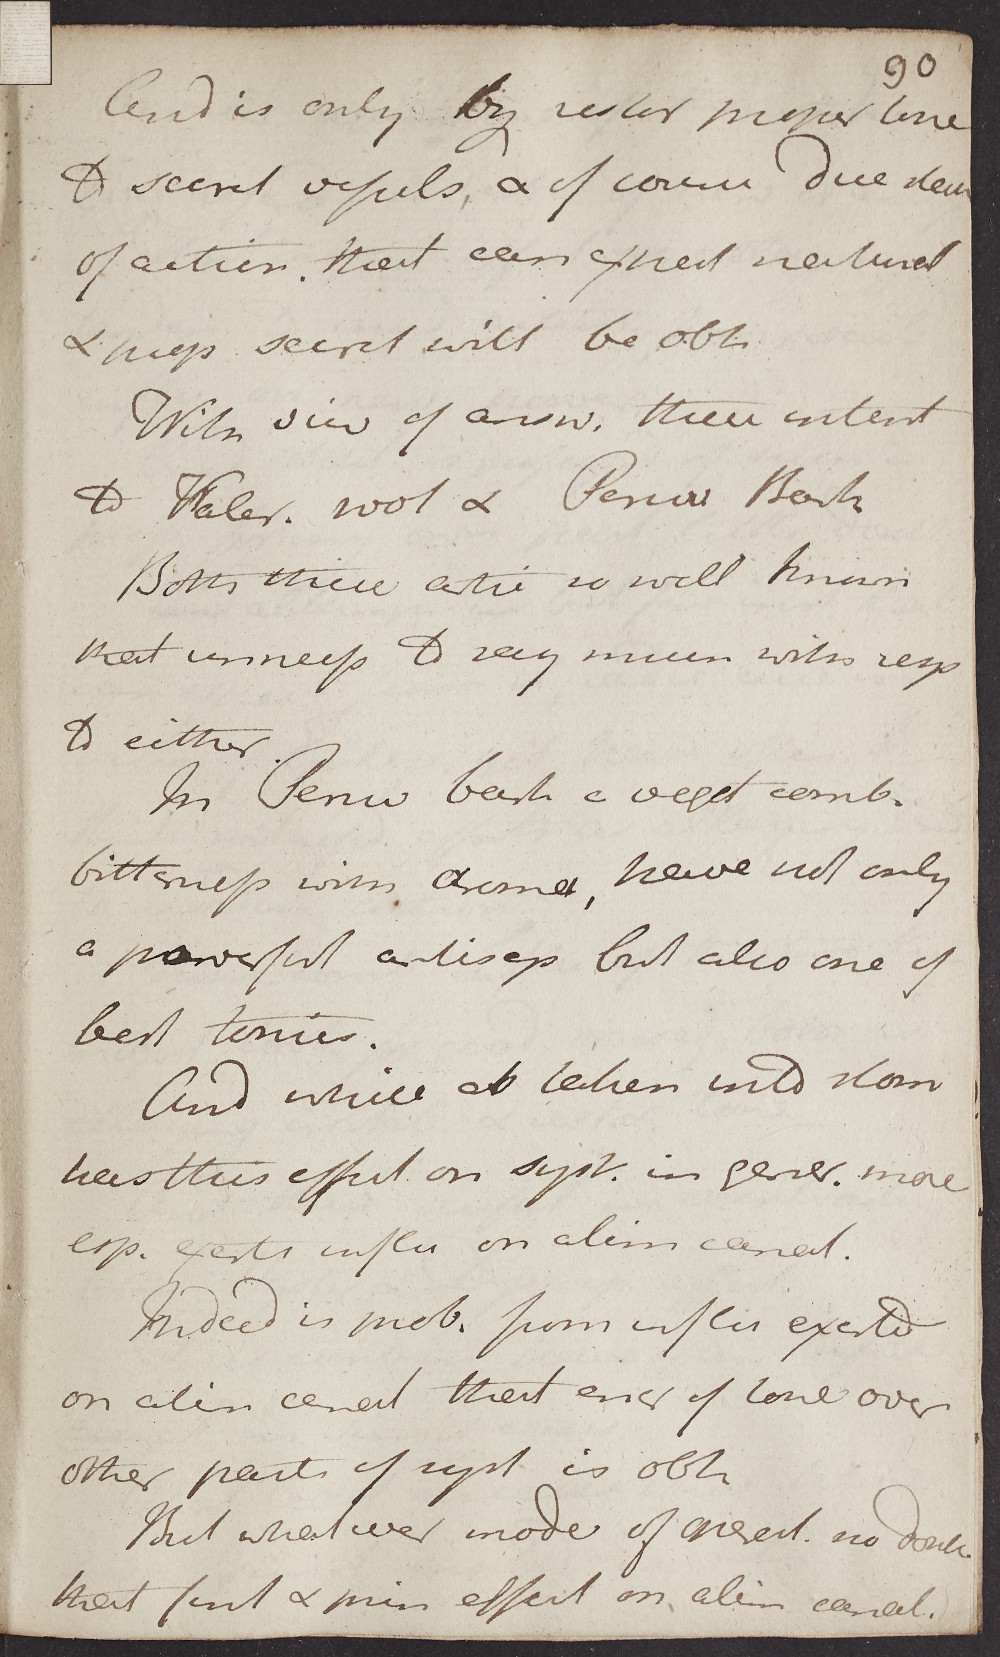 90
And is only by restor proper tone
to secret vessels, & of course due
of action. that can expect natural
& prop secret will be obt
With view of answ. these intent
to Valer. root & Peruv Bark
Both these artic so well known
that unness to say much with resp
to either.
In Peruv bark a veget comb.
bitterness with aroma, have not only
a powerful antisep but also one of
best tonics.
And while at taken into stom
has this effect on syst. in gener. more
esp. exerts influ on alim canal.
Indeed is prob. from influ exerted
on alim canal that encr of tone over
other parts of syst is obt
But whatever mode of operat. no doub.
that first & prin effect on alim canal.